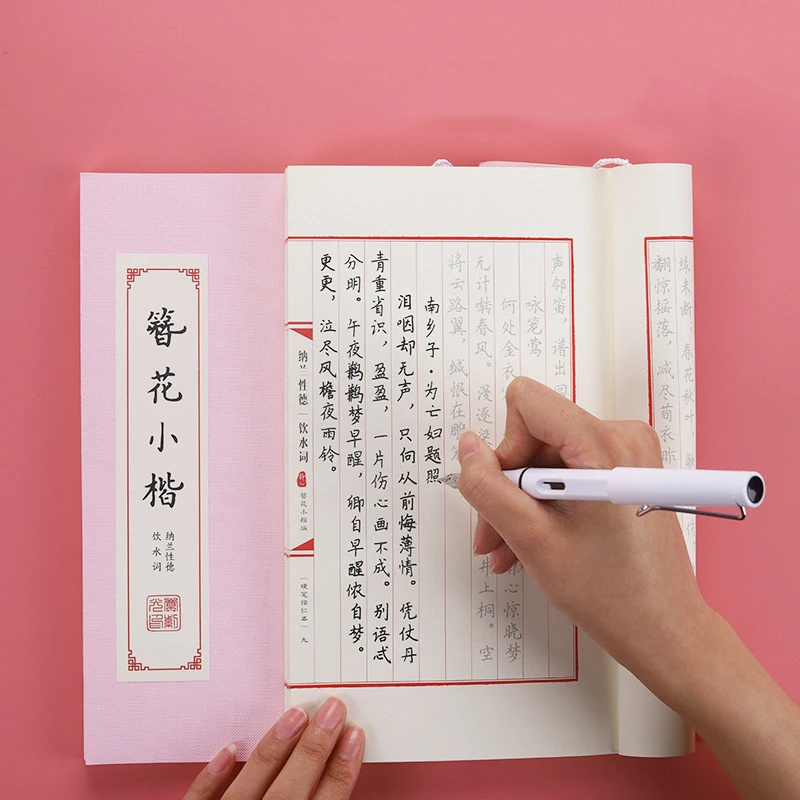 缘未断，春花秋叶，
翻惊摇落，减尽荀衣昨
声邻笛，谱出回
咏笼莺
何处金衣 心惊晓梦
无计啭春风。漫逐梁 井上桐。空
将云路翼，缄恨在雕笼
南乡子·为亡妇题照
泪咽却无声，只向从前悔薄情。凭仗丹
青重省识，盈盈，一片伤心画不成。别语忒
分明。午夜鹣鹣梦早醒，卿自早醒侬自梦。
更更，泣尽风檐夜雨铃。
纳兰性德｜饮水词
簪花小楷版
「硬笔描红本」九
簪花小楷
纳兰性德
饮水词